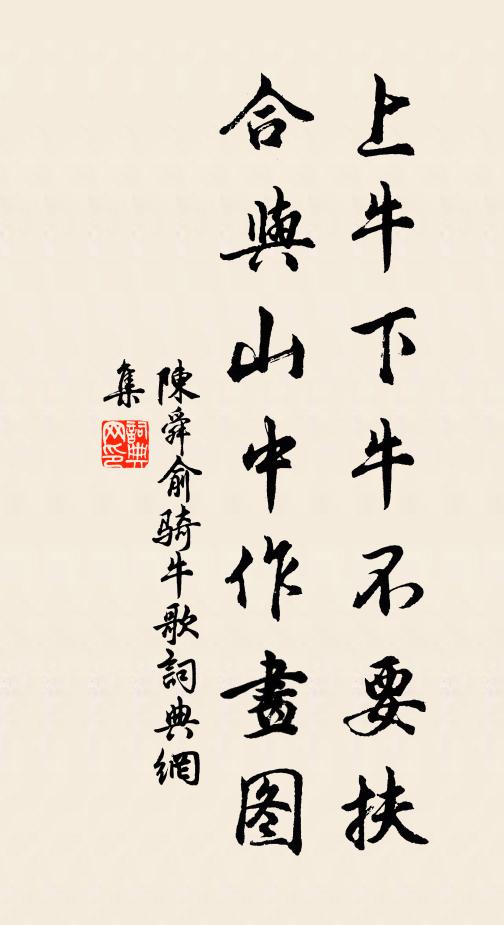 上牛下牛不要扶
合與山中作畫图
陳舜俞騎牛歌詞典網
集
詞典
网印